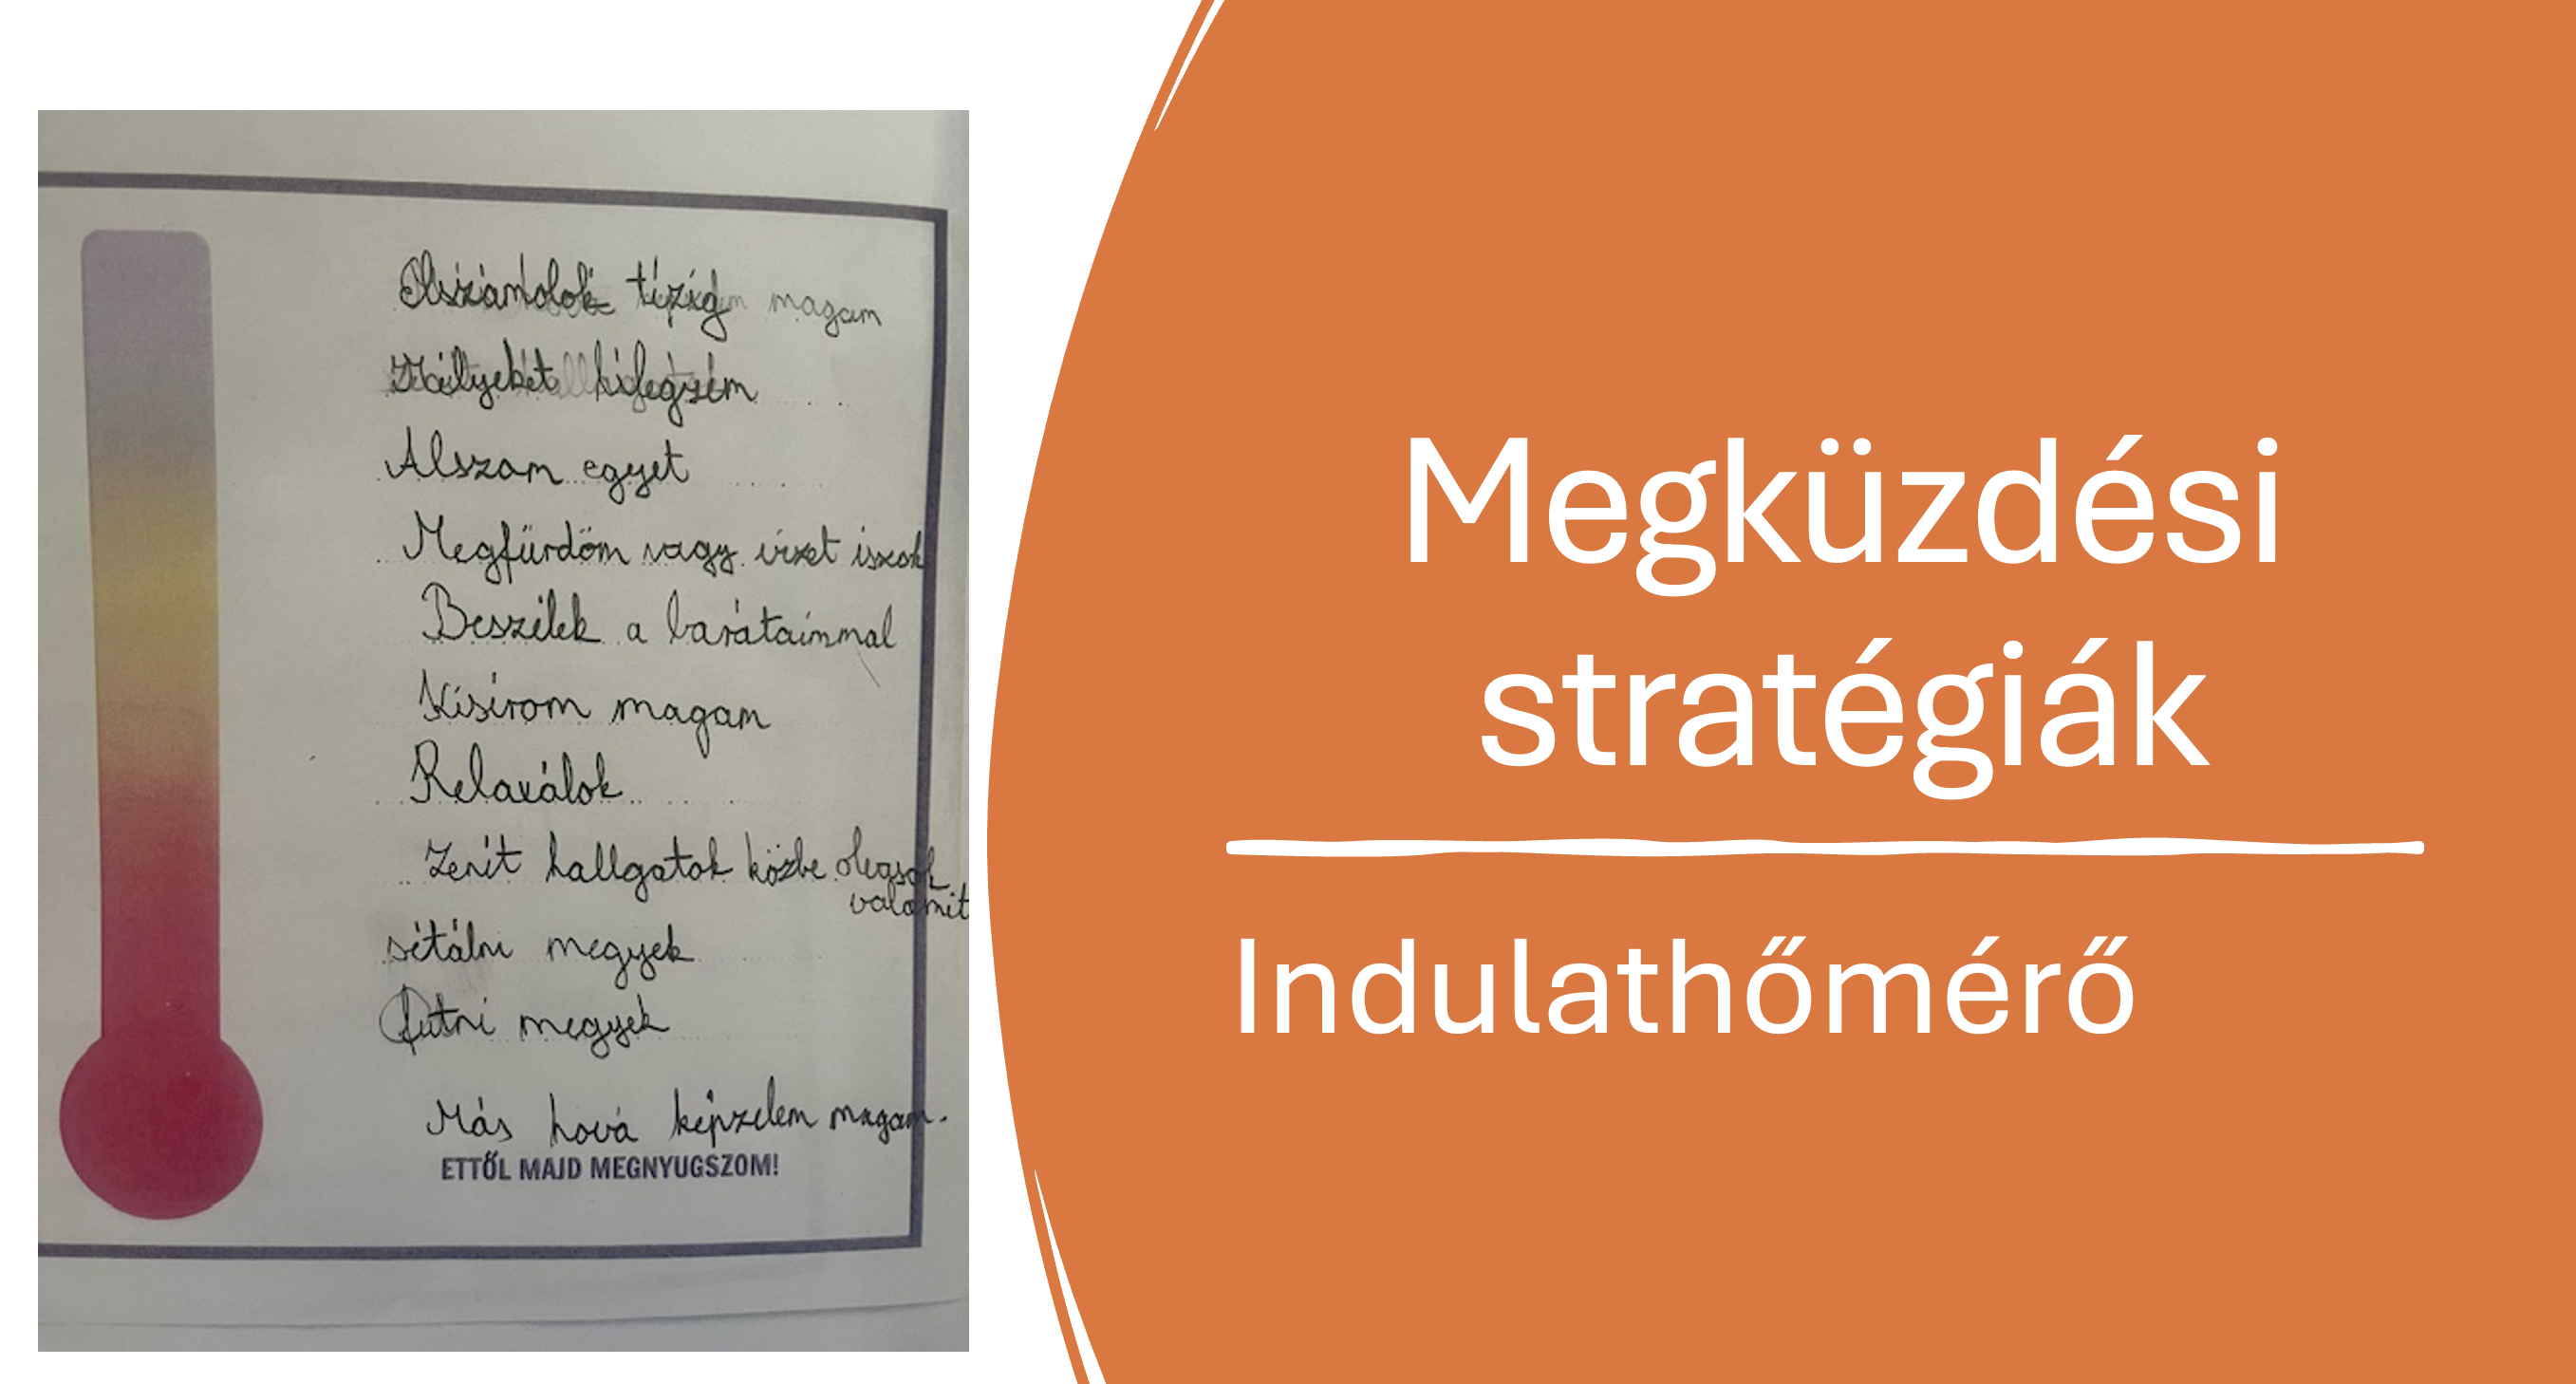 Elszámolok tízig magam
Mélyeket kilégzem
Alszom egyet
Megfürdöm vagy vizet iszok
Beszélek a barátaimmal
Kisírom magam
Relaxálok
Zenét hallgatok közbe olvasok
valamit
sétálni megyek
futni megyek
Más hová képzelem magam.
ETTŐL MAJD MEGNYUGSZOM!
Megküzdési
stratégiák
Indulathőmérő